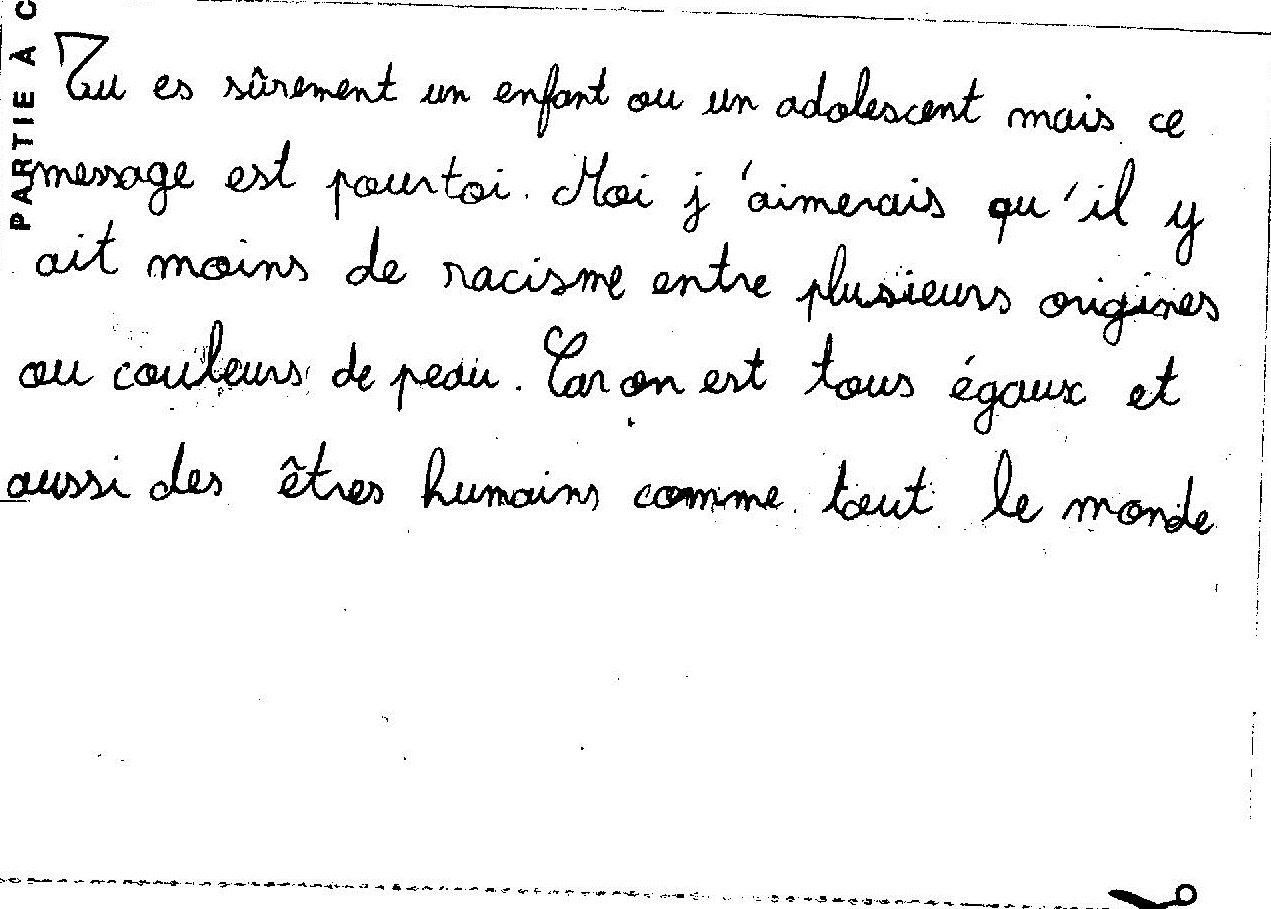 PARTIE À C
Tu es sûrement un enfant ou un adolescent mais ce
message est pour toi. Moi j'aimerais qu'il y
ait moins de racisme entre plusieurs origines
ou couleurs de peau. Car on est tous égaux et
aussi des êtres humains comme tout le monde